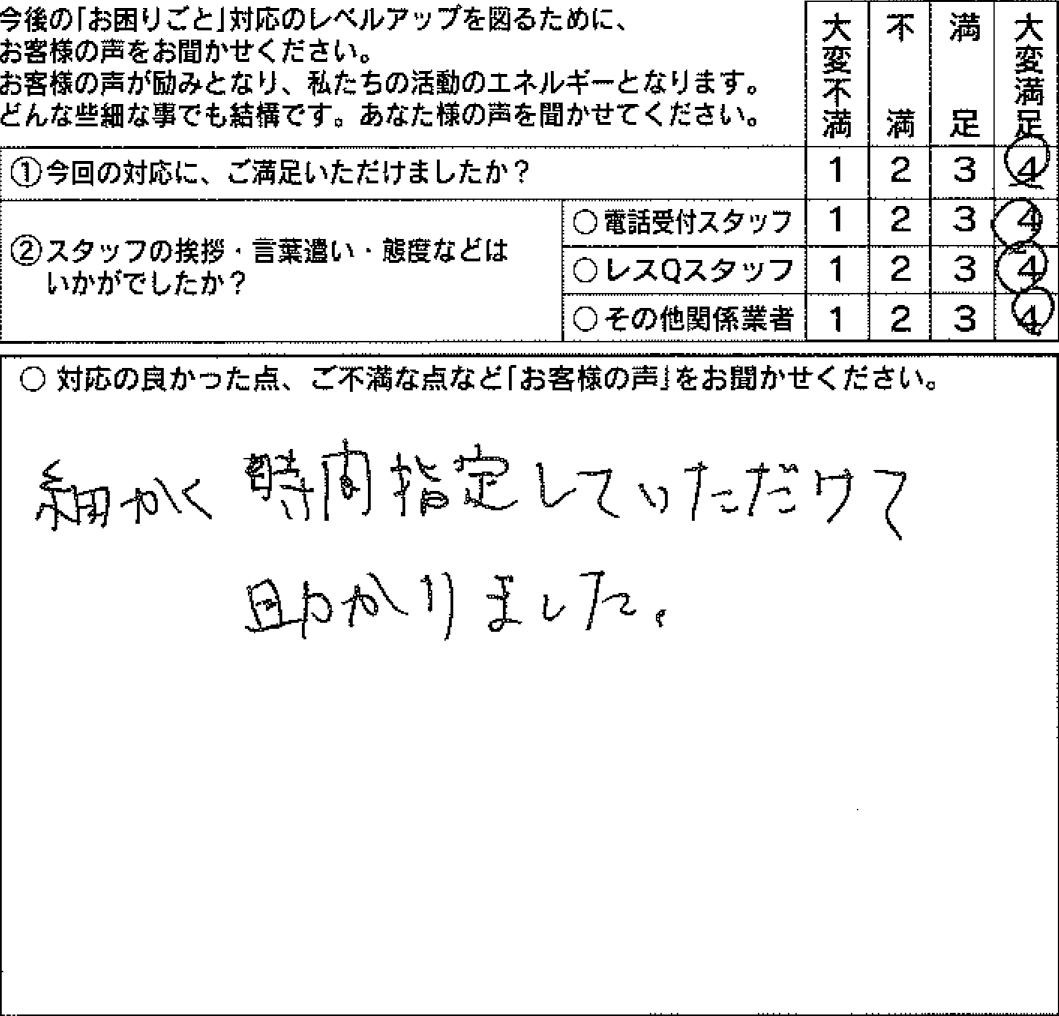 今後の「お困りごと」対応のレベルアップを図るために、
お客様の声をお聞かせください。
お客様の声が励みとなり、私たちの活動のエネルギーとなります。
どんな些細な事でも結構です。あなた様の声を聞かせてください。
大変不満 不満 満足 大変満足
①今回の対応に、ご満足いただけましたか? 1 2 3 4
②スタッフの挨拶・言葉遣い・態度などは
いかがでしたか?
○電話受付スタッフ 1 2 3 4
○レスQスタッフ 1 2 3 4
○その他関係業者 1 2 3 4
○ 対応の良かった点、ご不満な点など「お客様の声」をお聞かせください。
細かく時間指定していただけて
助かりました。